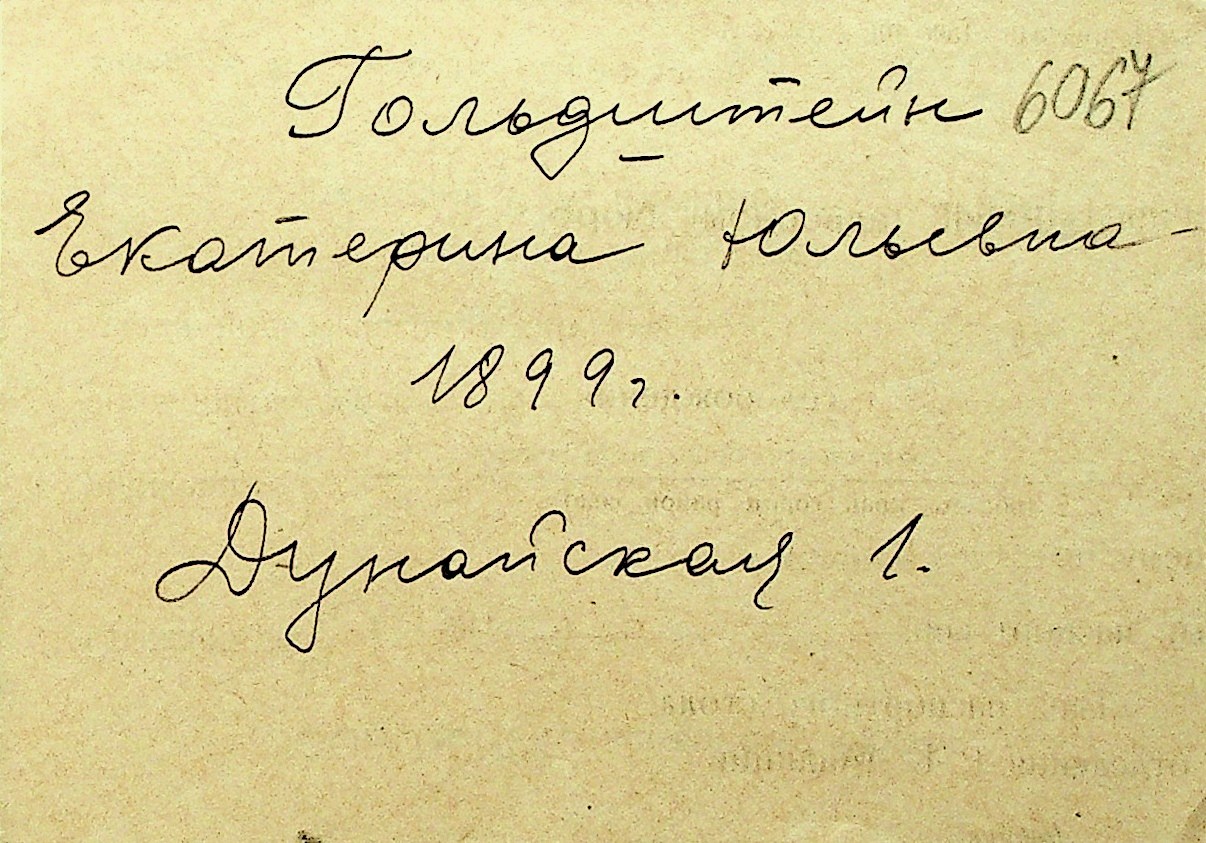 Гольдштейн 6067
Екатерина Юльевна -
1899 г.
Дунайская 1.